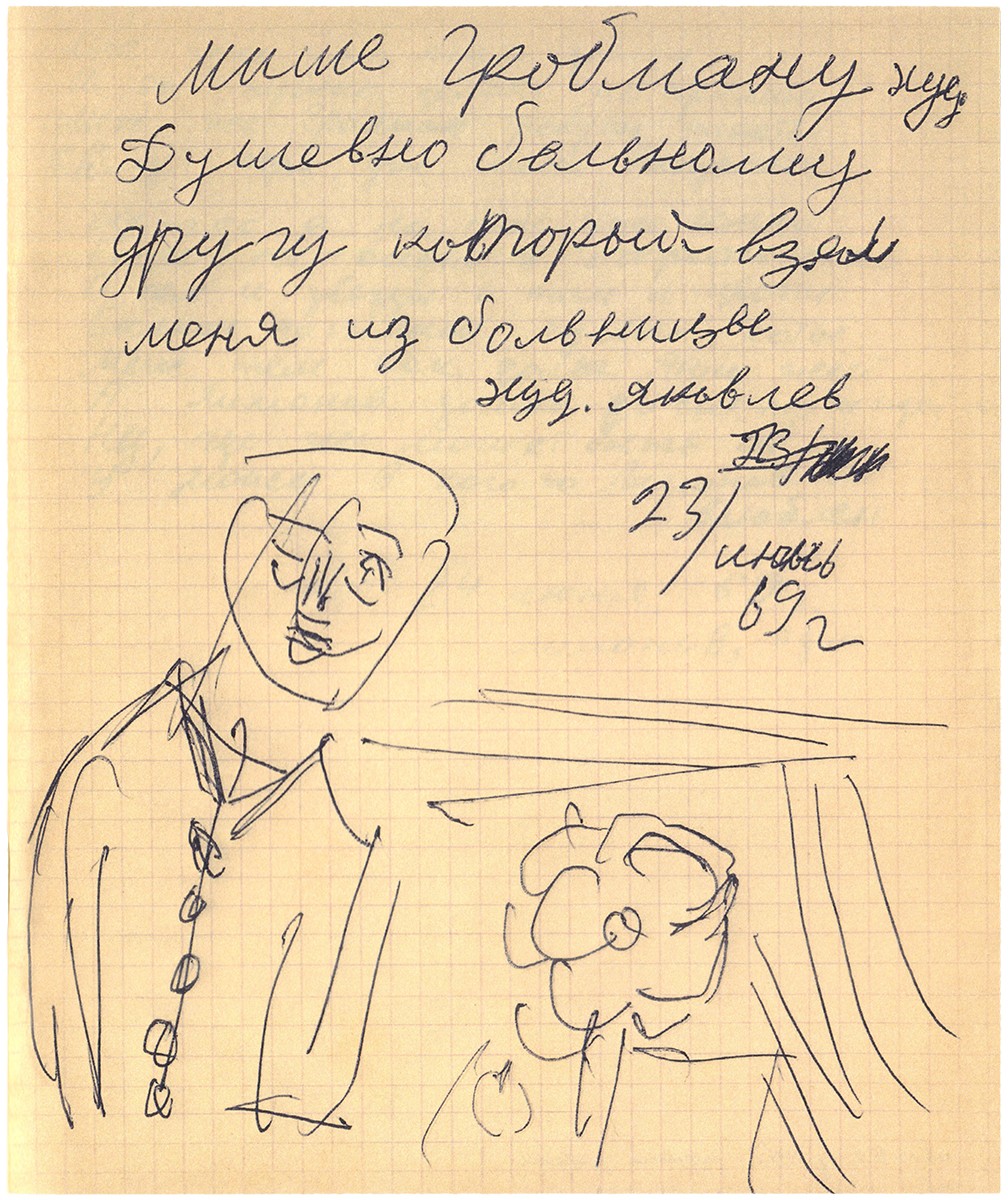 Мише Гробману худ.
Душевно больному
другу который взял
меня из больницы
худ. Яковлев
23/
июнь
69 г